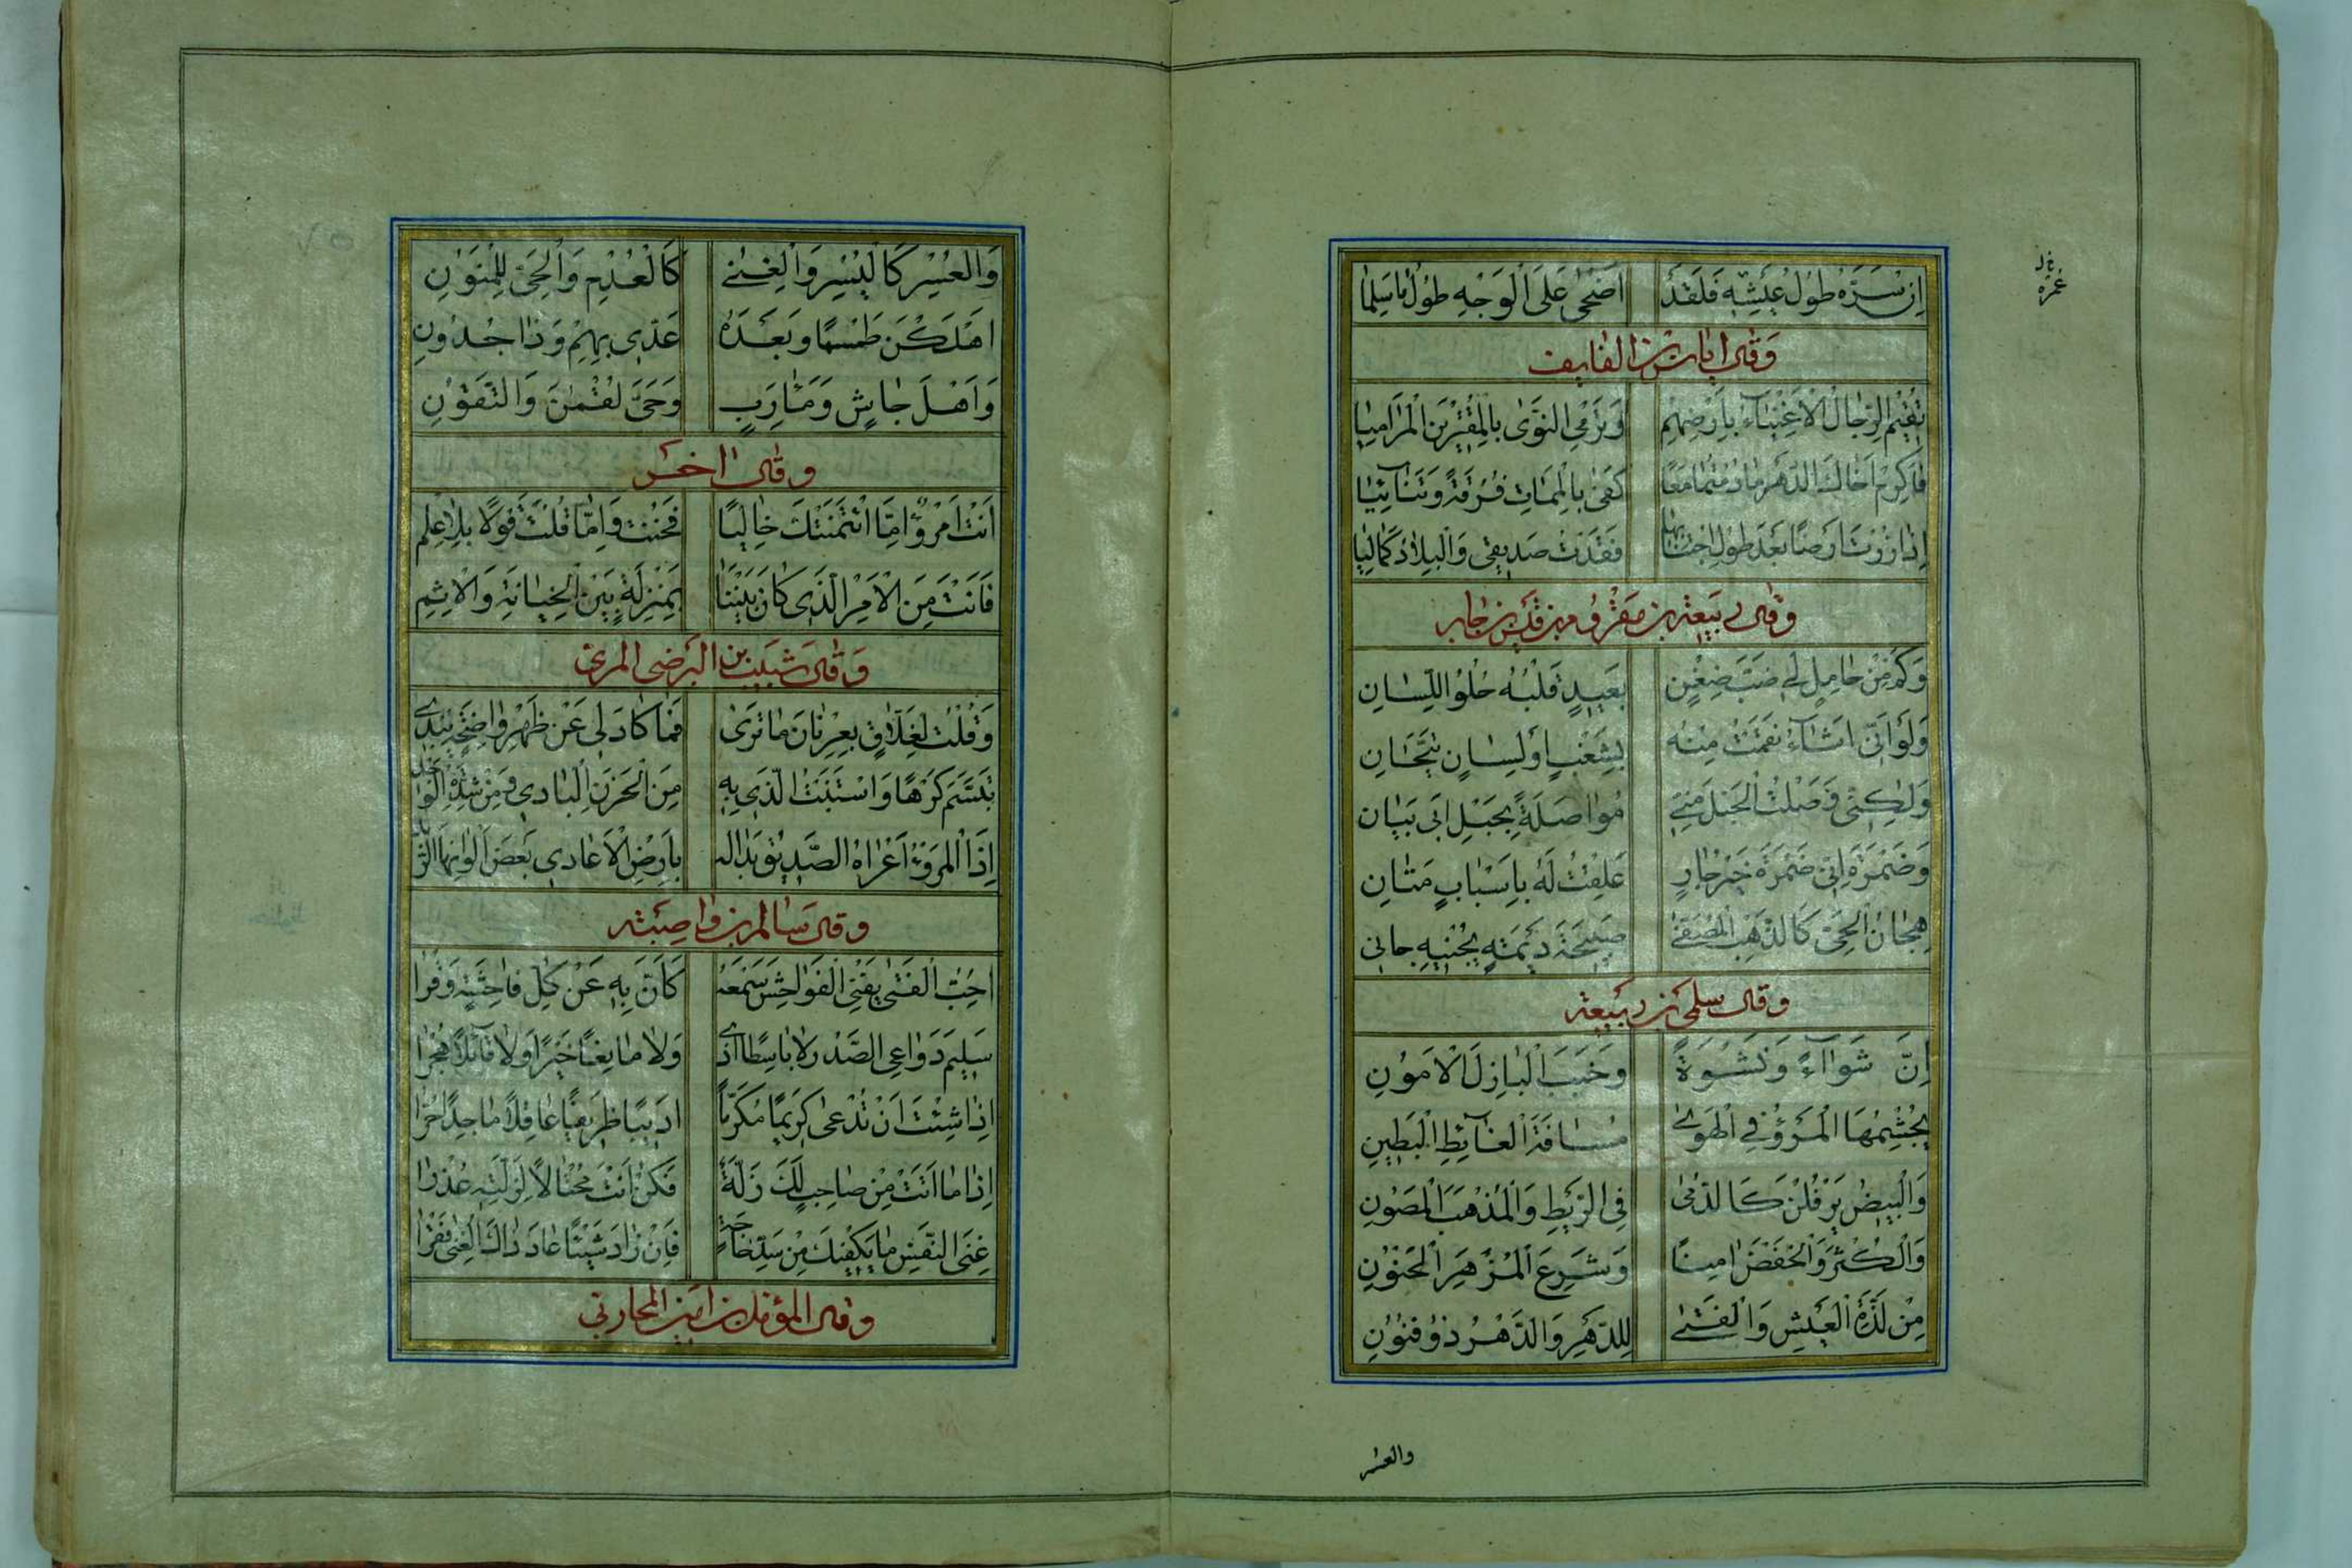 اِن سَرَّهُ طُولُ عَيْشِهِ فَلَقَدْ اَضْحٰى عَلَى الْوَجْهِ طُولُ مَا سَلِمَا
عُمْرِهِ
وَقَالَ اِيَاسُ بْنُ الْقَايِفِ
تُقِيْمُ الرِّجَالُ الْاَغْنِيَاءُ بِاَرْضِهِمْ وَتَرْمِي النَّوٰى بِالْمُقْتِرِيْنَ الْمَرَامِيَا
فَاَكْرِمْ اَخَاكَ الدَّهْرَ مَا دُمْتُمَا مَعًا كَفٰى بِالْمَمَاتِ فُرْقَةً وَتَنَائِيَا
اِذَا زُرْتُ اَرْضًا بَعْدَ طُولِ اجْتِنَابِهَا فَقَدْتُ صَدِيقِي وَالْبِلَادُ كَمَا هِيَا
وَقَالَ رَبِيْعَةُ بْنُ مَقْرُومِ بْنِ قَيْسِ بْنِ جَابِر
وَكَمْ مِنْ حَامِلٍ لِي ضَبَّ ضِغْنٍ بَعِيدٍ قَلْبُهُ حُلْوُ اللِّسَانِ
وَلَوْ اَنِّي اَشَاءُ نَقَمْتُ مِنْهُ بِشَغْبٍ اَوْ لِسَانٍ تَيَّحَانِ
وَلٰكِنِّي وَصَلْتُ الْحَبْلَ مِنِّي مُوَاصَلَةً بِحَبْلِ اَبِي بَيَانِ
وَضَمْرَةَ اِنَّ ضَمْرَةَ خَيْرُ جَارٍ عَلِقْتُ لَهُ بِاَسْبَابٍ مَتَانِ
هِجَانُ الْحَيِّ كَالذَّهَبِ الْمُصَفّٰى صَبِيْحَةَ دِيْمَةٍ يَجْنِيهِ جَانِي
وَقَالَ سُلْمِيُّ بْنُ رَبِيْعَة
اِنَّ شِوَاءً وَنَشْوَةً وَخَبَبَ الْبَازِلِ الْاَمُونِ
يُجْشِمُهَا الْمَرْءُ فِي الْهَوٰى مَسَافَةَ الْغَائِطِ الْبَطِينِ
وَالْبِيضَ يَرْفُلْنَ كَالدُّمٰى فِي الرَّيْطِ وَالْمُذْهَبِ الْمَصُونِ
وَالْكُثْرَ وَالْخَفْضَ اٰمِنًا وَشَرِعَ الْمِزْهَرِ الْحَنُونِ
مِنْ لَذَّةِ الْعَيْشِ وَالْفَتٰى لِلدَّهْرِ وَالدَّهْرُ ذُو فُنُونِ
والعسر
وَالْعُسْرُ كَالْيُسْرِ وَالْغِنٰى كَالْعُدْمِ وَالْحَيُّ لِلْمَنُونِ
اَهْلَكْنَ طَسْمًا وَبَعْدَهُ غَذِيَّ بِهِمْ وَذَا جُدُونِ
وَاَهْلَ جَاشٍ وَمَارِبٍ وَحَيَّ لُقْمَانَ وَالتُّقُونِ
وَقَالَ اٰخَرُ
اَنْتَ امْرُؤٌ اِمَّا ائْتَمَنْتُكَ خَالِيًا فَخُنْتَ وَاِمَّا قُلْتَ قَوْلًا بِلَا عِلْمِ
فَاَنْتَ مِنَ الْاَمْرِ الَّذِي كَانَ بَيْنَنَا بِمَنْزِلَةٍ بَيْنَ الْخِيَانَةِ وَالْاِثْمِ
وَقَالَ شَبِيْبُ بْنُ الْبَرْصَى الْمُرِّيّ
وَقُلْتُ لِغَلَّاقٍ بِعِرْنَانَ مَا تَرٰى فَمَا كَادَ لِي عَنْ ظَهْرِ وَاضِحَةٍ يُبْدِي
تَبَسَّمَ كَرْهًا وَاسْتَبَنْتُ الَّذِي بِهِ مِنَ الْحَزَنِ الْبَادِي وَمِنْ شِدَّةِ الْوَجْدِ
اِذَا الْمَرْءُ اَعْرَاهُ الصَّدِيقُ بَدَا لَهُ بِاَرْضِ الْاَعَادِي بَعْضُ اَلْوَانِهَا
وَقَالَ سَالِمُ بْنُ وَابِصَة
اُحِبُّ الْفَتٰى يَنْفِي الْفَوَاحِشَ سَمْعُهُ كَاَنَّ بِهِ عَنْ كُلِّ فَاحِشَةٍ وَقْرَا
سَلِيمَ دَوَاعِي الصَّدْرِ لَا بَاسِطًا اَذًى وَلَا مَانِعًا خَيْرًا وَلَا قَائِلًا هُجْرَا
اِذَا شِئْتَ اَنْ تُدْعٰى كَرِيمًا مُكَرَّمًا اَدِيبًا ظَرِيفًا عَاقِلًا مَاجِدًا حُرَّا
اِذَا مَا اَتَتْ مِنْ صَاحِبٍ لَكَ زَلَّةٌ فَكُنْ اَنْتَ مُحْتَالًا لِزَلَّتِهِ عُذْرَا
غِنَى النَّفْسِ مَا يَكْفِيْكَ مِنْ سَدِّ حَاجَةٍ فَاِنْ زَادَ شَيْئًا عَادَ ذَاكَ الْغِنٰى فَقْرَا
وَقَالَ الْمُؤَمَّلُ بْنُ اُمَيْلٍ الْمُحَارِبِيّ